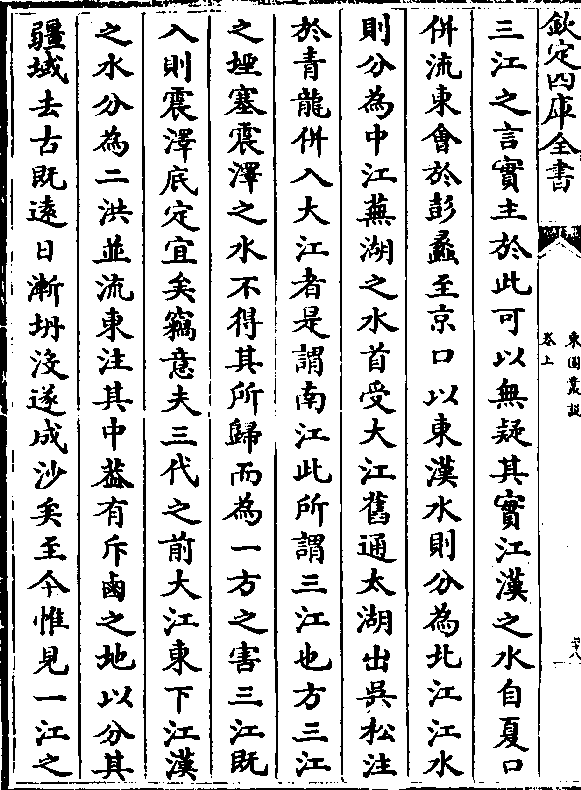 欽定四庫全書
東園叢說
卷上
三江之言實主於此可以無疑其實江漢之水自夏口
併流東會於彭蠡至京口以東漢水則分為北江江水
則分為中江蕪湖之水首受大江舊通太湖出吳松注
於青龍併入大江者是謂南江此所謂三江也方三江
之堙塞震澤之水不得其所歸而為一方之害三江既
入則震澤底定宜矣竊意夫三代之前大江東下江漢
之水分為二洪並流東注其中葢有斥鹵之地以分其
疆域去古既遠日漸坍沒遂成沙矣至今惟見一江之